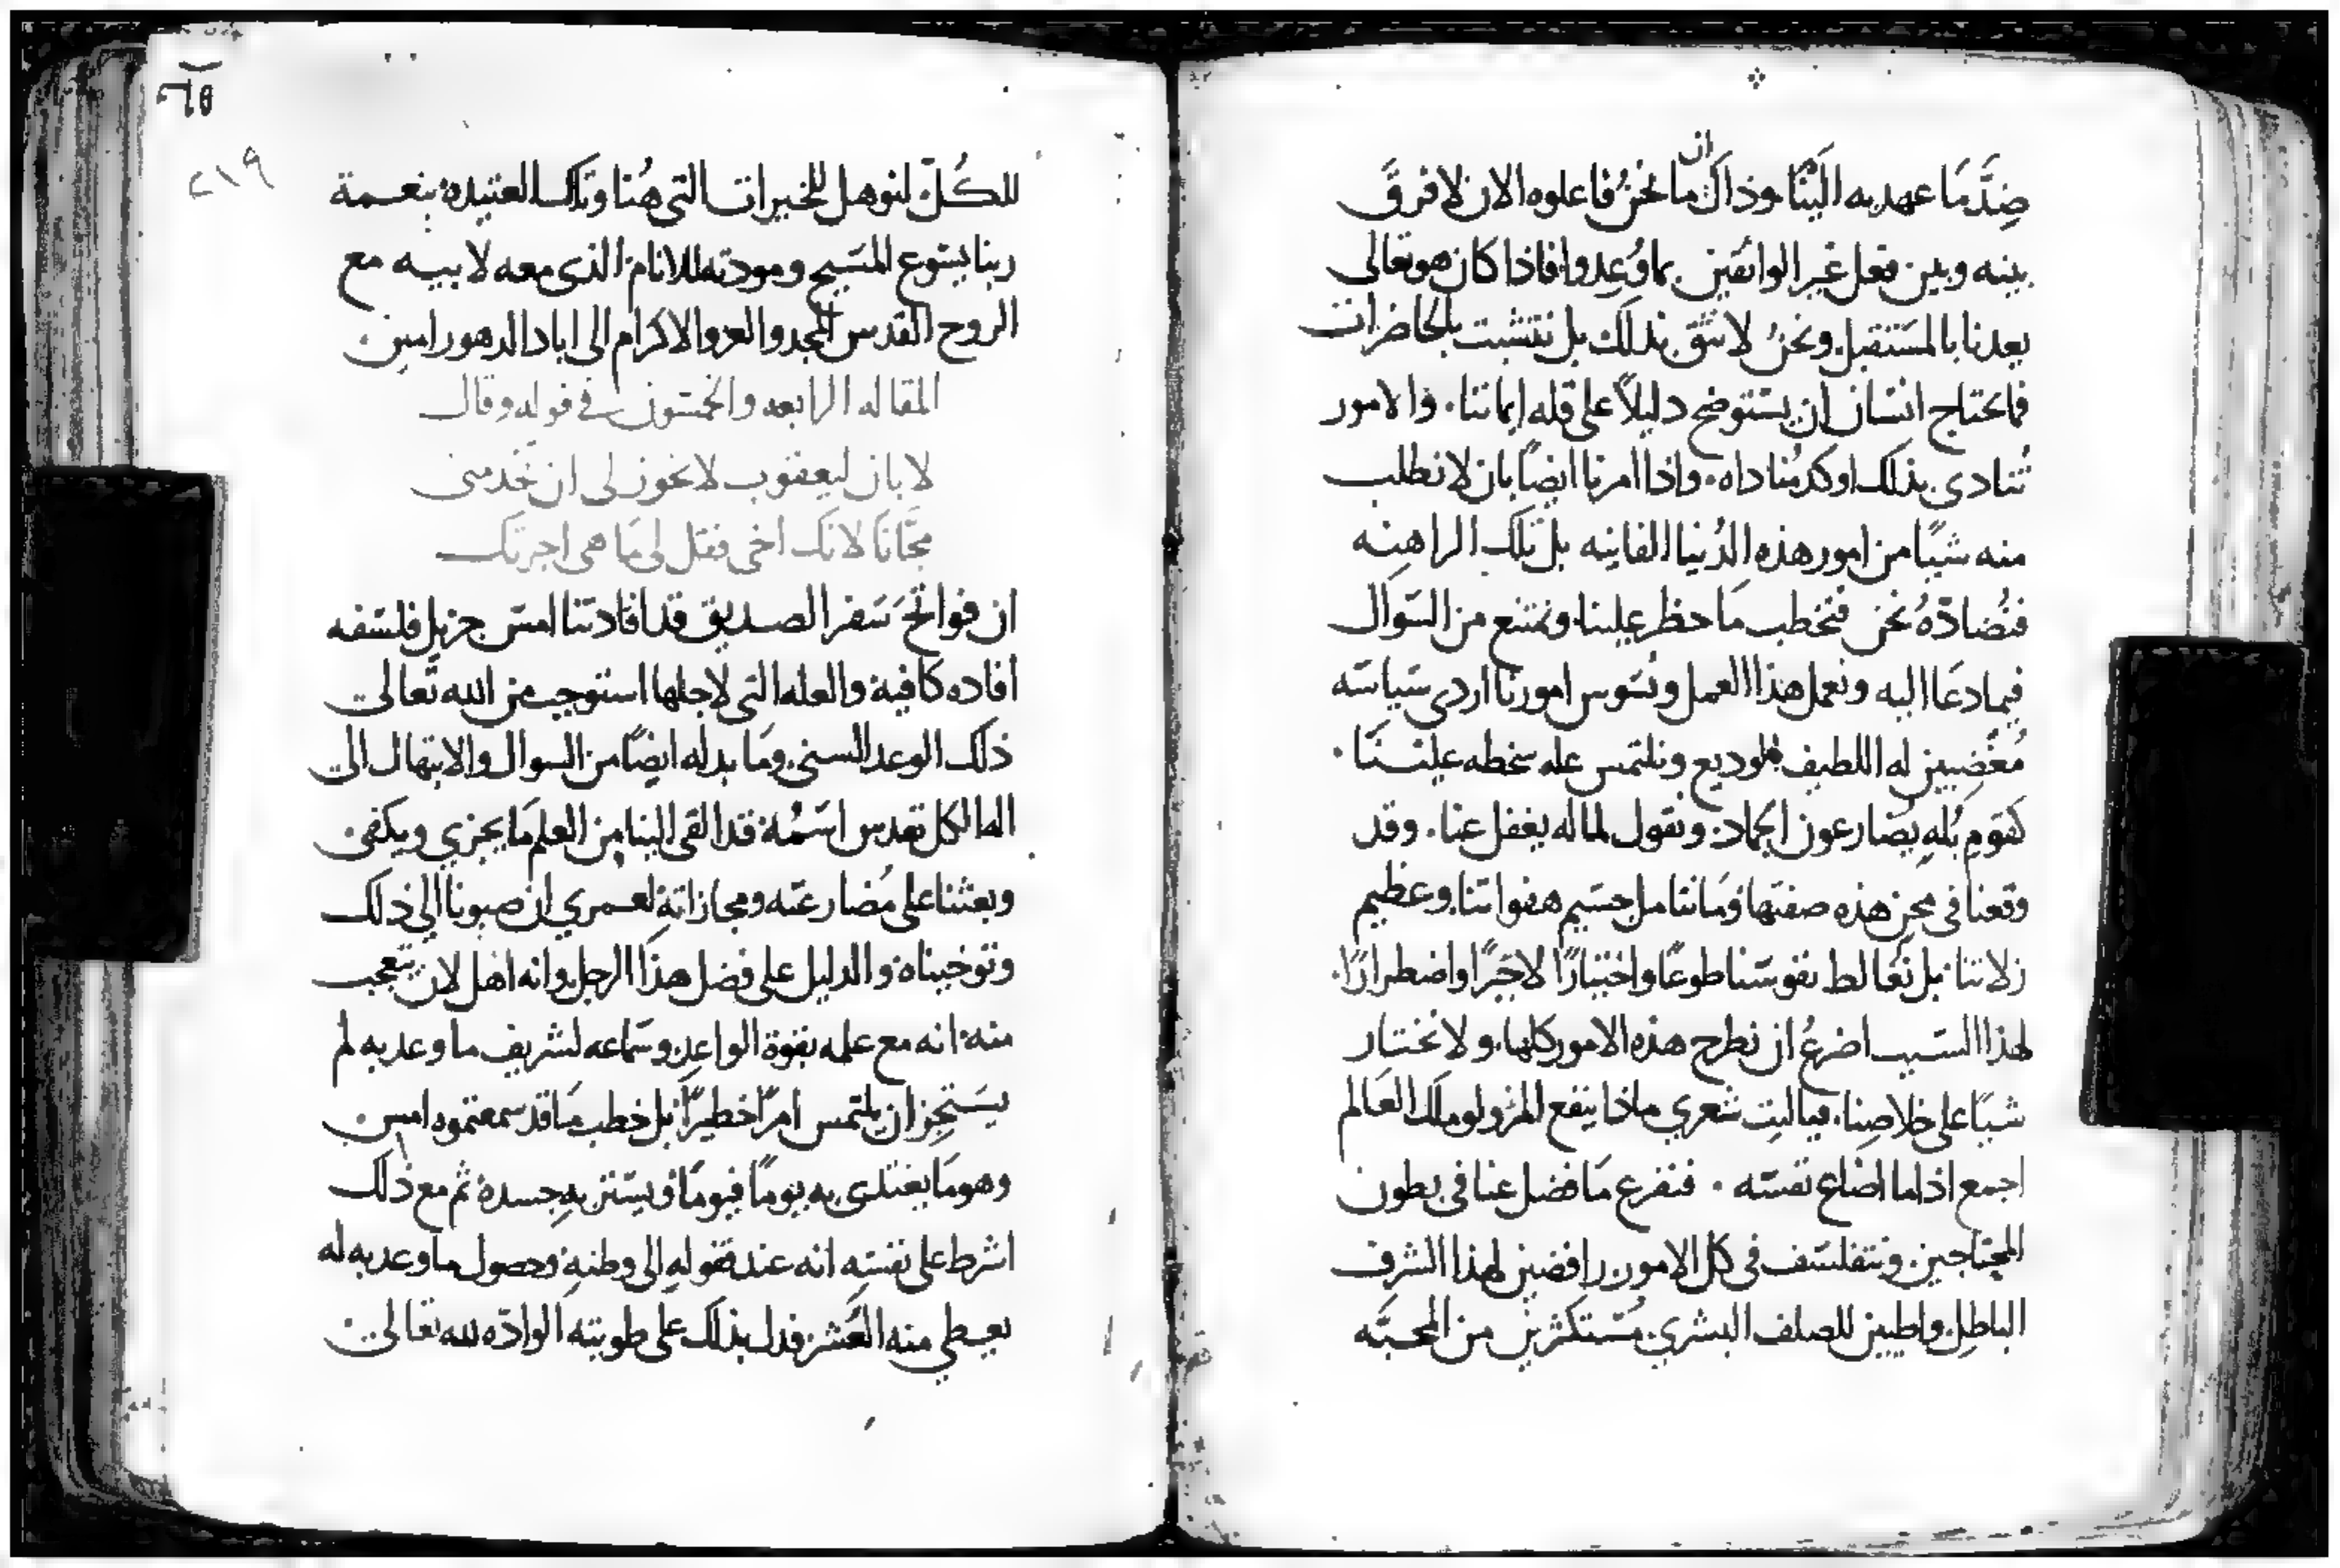 ضِدَّ مَا عهد به الَينَا وذاك ان ما نحنُ فاعلوه الان لا فرقَ
بينه وبين فعل غير الواثقين بما وُعِدوا فاذا كان هو تعالى
يعدنا بالمسَتقبل ونحنُ لا نثق بذلك بل نتشبت بالحاضرات
فما يحتاج انسَان ان يسَتوضح دليلاً على قله ايماننا. والامور
تُنادى بذلك اوكد مُناداه. واذا امرنا ايضًا بان لا نطلب
منه شيًا من امور هذه الدُنيا الفانيه بل تلك الراهنه
فنُضادّهُ نحن فنخطب مَا حظر علينا ونمتنع من السَوال
فيما دعَا اليه ونعمل هذا العمل ونسَوس امورنا اردى سَياسَه
مُغضِبين له اللطيف الوديع ونلتمس عله سخطه علينَا.
كقومٍ بُلهٍ يضارعون الجماد. ونقول لماله يغفل عنا. وقد
وقعنا فى محن هذه صفتها ومَا نتامل جسَيم هفواتنا وعظيم
زلاتنا بل نغَالط نفوسَنا طوعًا واختيارًا لا جبرًا واضطرارًا.
لهذا السَبب اضرعُ ان نطرح هذه الامور كلها ولا نختَار
شيًا على خلاصِنا. فياليت شعري ماذا ينفع المرؤ لو ملك العَالم
اجمع اذا ما اضاع نفسَه. فنفرع مَا فضل عنا فى بطون
المحتاجين ونتفلسَف فى كل الامور رافضين لهذا الشرف
الباطل واطيين للصلف البشري مسَتكثرين من المحبَه
٢١٩
للكُلّ لنوهل للخيرات التى هُنا وتلك العتيده بنعمة
ربنا يسَوع المسَيح ومودته للانام الذى معه لابيه مع
الروح القدس المجد والعز والاكرام الى اباد الدهور امين
المقاله الرابعه والخمسَون فى قوله وقال
لابان ليعقوب لا يجوز لى ان تخدمنى
مجَّانَا لانك اخى فقل لى مَا هى اجرتك
ان فواتحَ سَفر الصديق قد افادتنا امسَ جزيل فلسَفه
افاده كافية والعله التى لاجلها استوجب من الله تَعالى
ذلك الوعد السنى ومَا بدله ايضًا من السوال والابتهال الى
اله الكل تقدس اسَمُه قد القى الينا من العلم مَا يجزي ويكفى
وبعثنا على مُضارعَته ومجازاته لعمري ان صبونا الى ذلك
وتوخيناه والدليل على فضل هذا الرجل وانه اهل لان يتعجب
منه انه مع علمه بقوة الواعد وسَماعه لشريف ما وعد به لم
يسَتجز ان يلتمس امرًا خطيرًا بل خطب مَا قد سمعتموه امس
وهو مَا يغتذى به يومًا فيومًا ويسَتر بهِ جسده ثم مع ذلك
اشرط على نفسَه انه عند قفولهِ الى وطنهِ وحصول ما وعد به له
يعطي منه العَشر فدل بذلك على طويته الوادّه لله تعَالى